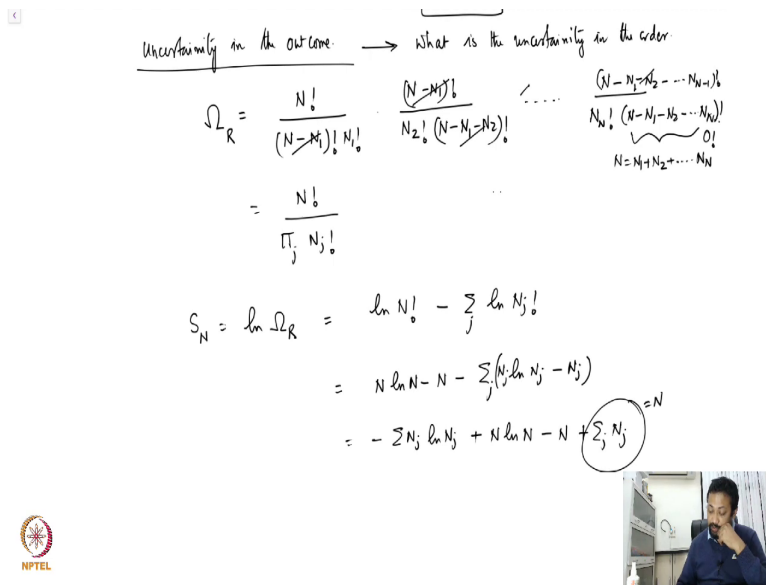 uncertainity in the outcome. → What is the uncertainity in the order.
Ω_R = N! / (N-N₁)! N₁! · (N-N₁)! / N₂! (N-N₁-N₂)! ..... (N-N₁-N₂- ...N_{N-1})! / N_N! (N-N₁-N₂-...N_N)!
0!
N=N₁+N₂+....N_N
= N! / Π_j N_j!
S_N = ln Ω_R = ln N! - Σ_j ln N_j!
= N ln N - N - Σ_j (N_j ln N_j - N_j)
= - Σ N_j ln N_j + N ln N - N + Σ_j N_j = N
NPTEL